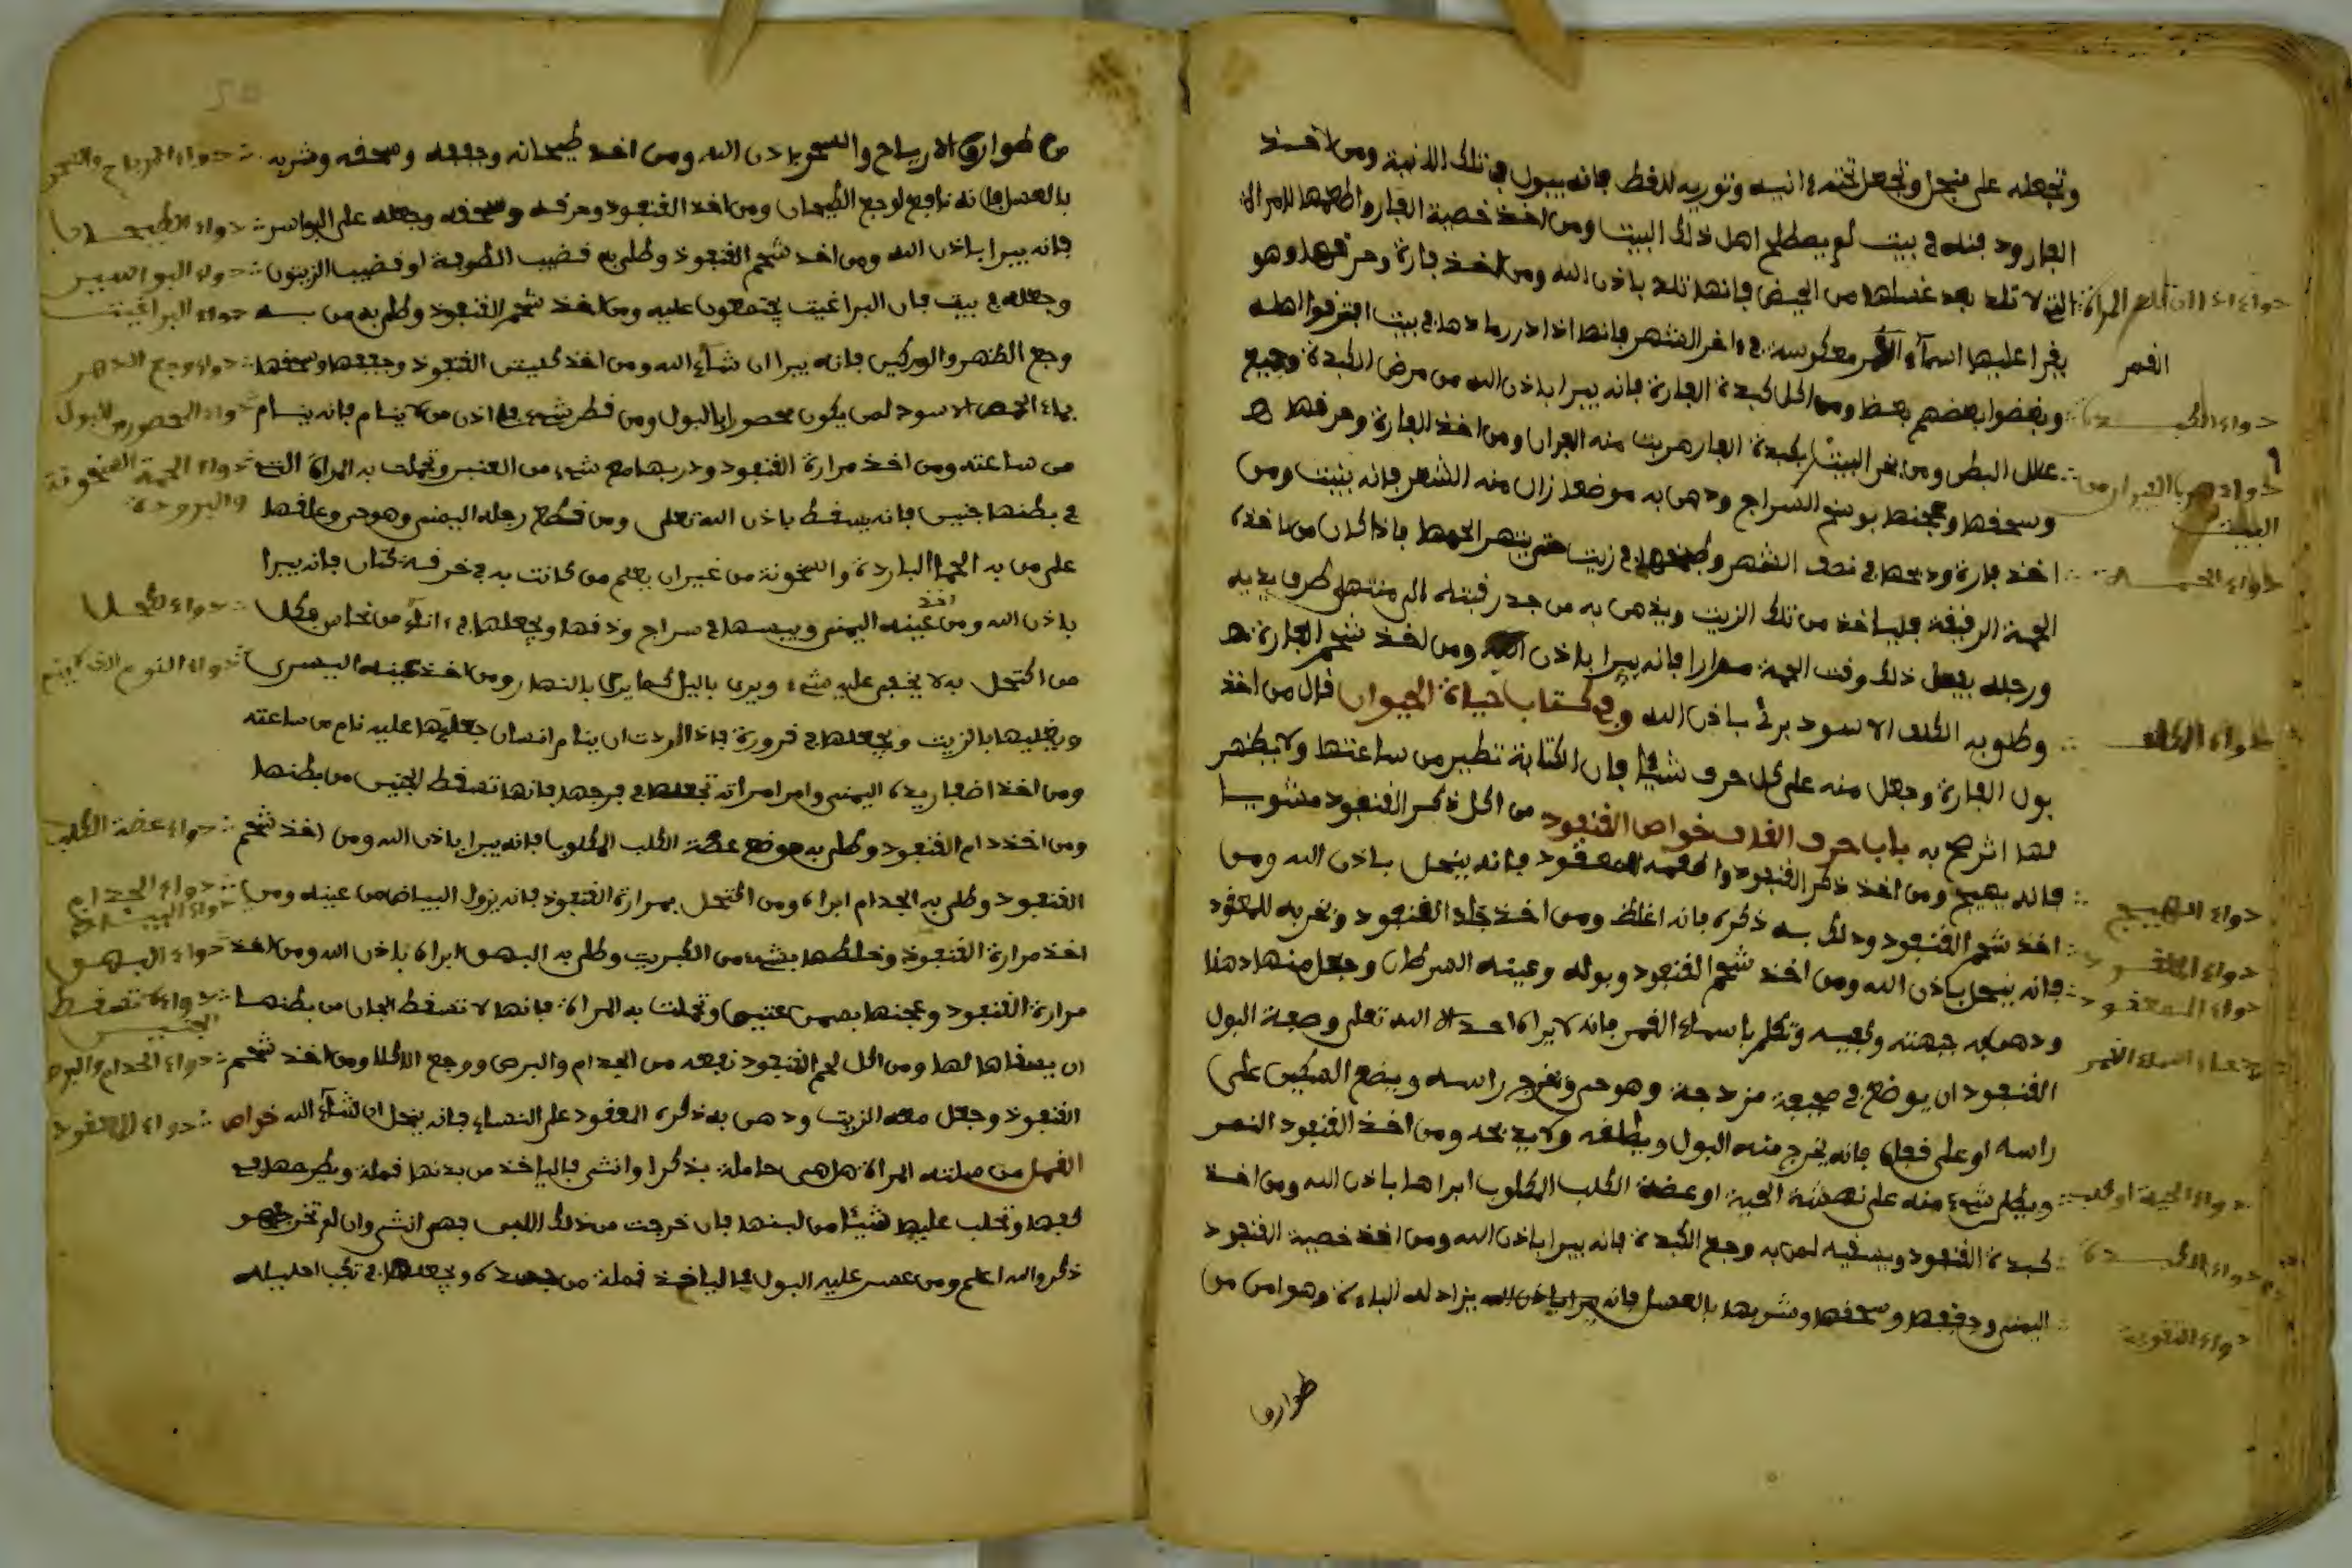 وتجعله على منجل وتجعل تحته ءانيه وتوريه للفط فانه يبول في تلك الانية ومن اخذ
الفار ود فنه في بيت لم يصطلح اهل ذلك البيت ومن اخذ خصية الفار واطعمها للمراة
التي لا تلد بعد غسلها من الحيض فانها تلد باذن الله ومن اخذ فارة وحرقها وهو
يقرا عليها اسماء القمر معكوسة في ءاخر الشهر فانها اذا ذر رمادها في بيت افترقوا اهله
وبغضوا بعضهم بعضا ومن اكل كبدة الفارة فانه يبرا باذن الله من مرض الكبدة وجميع
علل البطن ومن بخر البيت بكبدة الفار هربت منه الفيران ومن اخذ الفارة وحرقها
وسحقها وعجنها بوسخ السراج ودهن به موضعا زال منه الشعر فانه ينبت ومن
اخذ فارة وذبحها في نصف الشهر وطبخها في زيت حتى يتهرا لحمها فاذا كان من تاخذه
الحمة الرقيقة فليا خذ من تلك الزيت ويدهن به من جدر رقبته الى منتهى طرف يديه
ورجليه يفعل ذلك وقت الحمة مرارا فانه يبرا باذن الله ومن اخذ شحم الفارة
وطلو به الكلف الاسود برئ باذن الله وفي كتاب حياة الحيوان قال من اخذ
بول الفارة وجعل منه على كل حرف شيئا فان الكتابة تطير من ساعتها ولا يظهر
لها اثر صح به باب حرف القاف خواص القنفود من اكل ذكر القنفود مشويا
فانه يهيج ومن اخذ ذكر القنفود واطعمه للمعقود فانه ينحل باذن الله ومن
اخذ شحم القنفود ودلك به ذكره فانه اغلظ ومن اخذ جلد القنفود وبخر به للمعقود
فانه ينحل باذن الله ومن اخذ شحم القنفود وبوله وعينه السرطان وجعل منها دهنا
ودهن به جبهته وكعبيه وتكلم باسماء القمر فانه لا يراه احد الا الله تعلى وصفة البول
القنفود ان يوضع في صحيفة مزدجة وهو حي وتخرج راسه ويضع السكين على
راسه او على فعله فانه يخرج منه البول ويطلقه ولا يذبحه ومن اخذ القنفود
ويطلى شيء منه على نهشة الحية او عضة الكلب المكلوب ابراها باذن الله ومن اخذ
كبدة القنفود ويسقيه لمن به وجع الكبدة فانه يبرا باذن الله ومن اخذ خصية القنفود
اليمنى وجففها وسحقها وشربها بالعسل فانه يزاد له الباءة وهو امن من
طوارق
دواء اذا ان تلد المراة
القمر
دواء الكبدة
دواء هرب الفيران من
البيت
دواء الحمة
دواء الكلف
دواء التهييج
دواء المعقود
دواء المعقود
اسماء القمر
دواء الحية او كلب
دواء الكبدة
دواء التقوية
من طوارق الارياح والسحر باذن الله ومن اخذ طيحانه وجففه وسحقه وشربه
بالعسل فانه نافع لوجع الطيحان ومن اخذ القنفود وحرقه وسحقه وجعله على البواسر
فانه يبرا باذن الله ومن اخذ شحم القنفود وطلى به قضيب الطرفة او قضيب الزيتون
وجعله في بيت فان البراغيت يجتمعون عليه ومن اخذ شحم القنفود وطلى به من به
وجع الظهر والوركين فانه يبرا ان شاء الله ومن اخذ كليتي القنفود وجففها وسحقها
بماء الحمص الاسود لمن يكون محصورا بالبول ومن قطر شيء في اذن من لا ينام فانه ينام
من ساعته ومن اخذ مرارة القنفود ودربها مع شيء من العنبر وتحملت به المراة التي
في بطنها جنين فانه يسقط باذن الله تعلى ومن قطع رجله اليمنى وهو حي وعلقها
على من به الحما الباردة والسخونة من غير ان يعلم من كانت به في خرقة كتان فانه يبرا
باذن الله ومن اخذ عينه اليمنى ويبسها في سراج ودقها ويجعلها في اناء من نحاس فكل
من اكتحل به لا يخفى عليه شيء ويرى باليل كما يرى بالنهار ومن اخذ عينه اليسرى
ويغليها بالزيت ويجعلها في قرورة فاذا اردت ان ينام انسان جعلتها عليه نام من ساعته
ومن اخذ اضفار يده اليمنى وامر امراته تجعلها في فرجها فانها تسقط الجنين من بطنها
ومن اخذ دام القنفود وطلى به موضع عضة الكلب المكلوب فانه يبرا باذن الله ومن اخذ شحم
القنفود وطلى به الجدام ابراه ومن اكتحل بمرارة القنفود فانه يزول البياض من عينه ومن
اخذ مرارة القنفود وخلطها بشيء من الكبريت وطلى به البهق ابراه باذن الله ومن اخذ
مرارة القنفود وعجنها بصمن عتيق وتحملت به المراة فانها لا تسقط الجان من بطنها
ان يصفاها لها ومن اكل لحم القنفود نفعه من الجدام والبرص ووجع الكلا ومن اخذ شحم
القنفود وجعل معه الزيت ودهن به ذكره المعقود على النساء فانه ينحل ان شاء الله خواص
القمل من صلته المراة هل هي حاملة بذكرا وانثى فاليا خذ من بدنها قملة ويطرحها في
كفها وتحلب عليها شيئا من لبنها فان خرجت من ذلك اللبن فهي انثى وان لم تخرج فهو
ذكر والله اعلم ومن عسر عليه البول فاليا خذ قملة من جسده ويجعلها في تكب احليله
دواء الارياح والسحر
دواء الطيحان
دواء البواسير
دواء البراغيت
دواء وجع الظهر
دواء المحصور من البول
دواء الحمة السخونة
والبرودة
دواء الكحل
دواء النوم الذي لا ينم
دواء عضة الكلب
دواء الجدام
دواء البياض
دواء البهق
دواء لا تسقط
الجنين
دواء الجدام والبرص
دواء المعقود